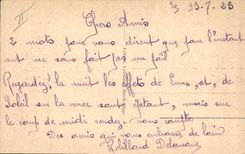 II
13-7-23
Chers Amis
2 mots pour vous dirent que pour l'instant
tout ne sans fait pas un fait
Regardez! la nuit les effets de lune, et, de
Soleil sur la mer sont épatant, mais sur
le coup de midi rendez-vous compte
Des amis qui vous embrasse de loin
Robillard Delanoue